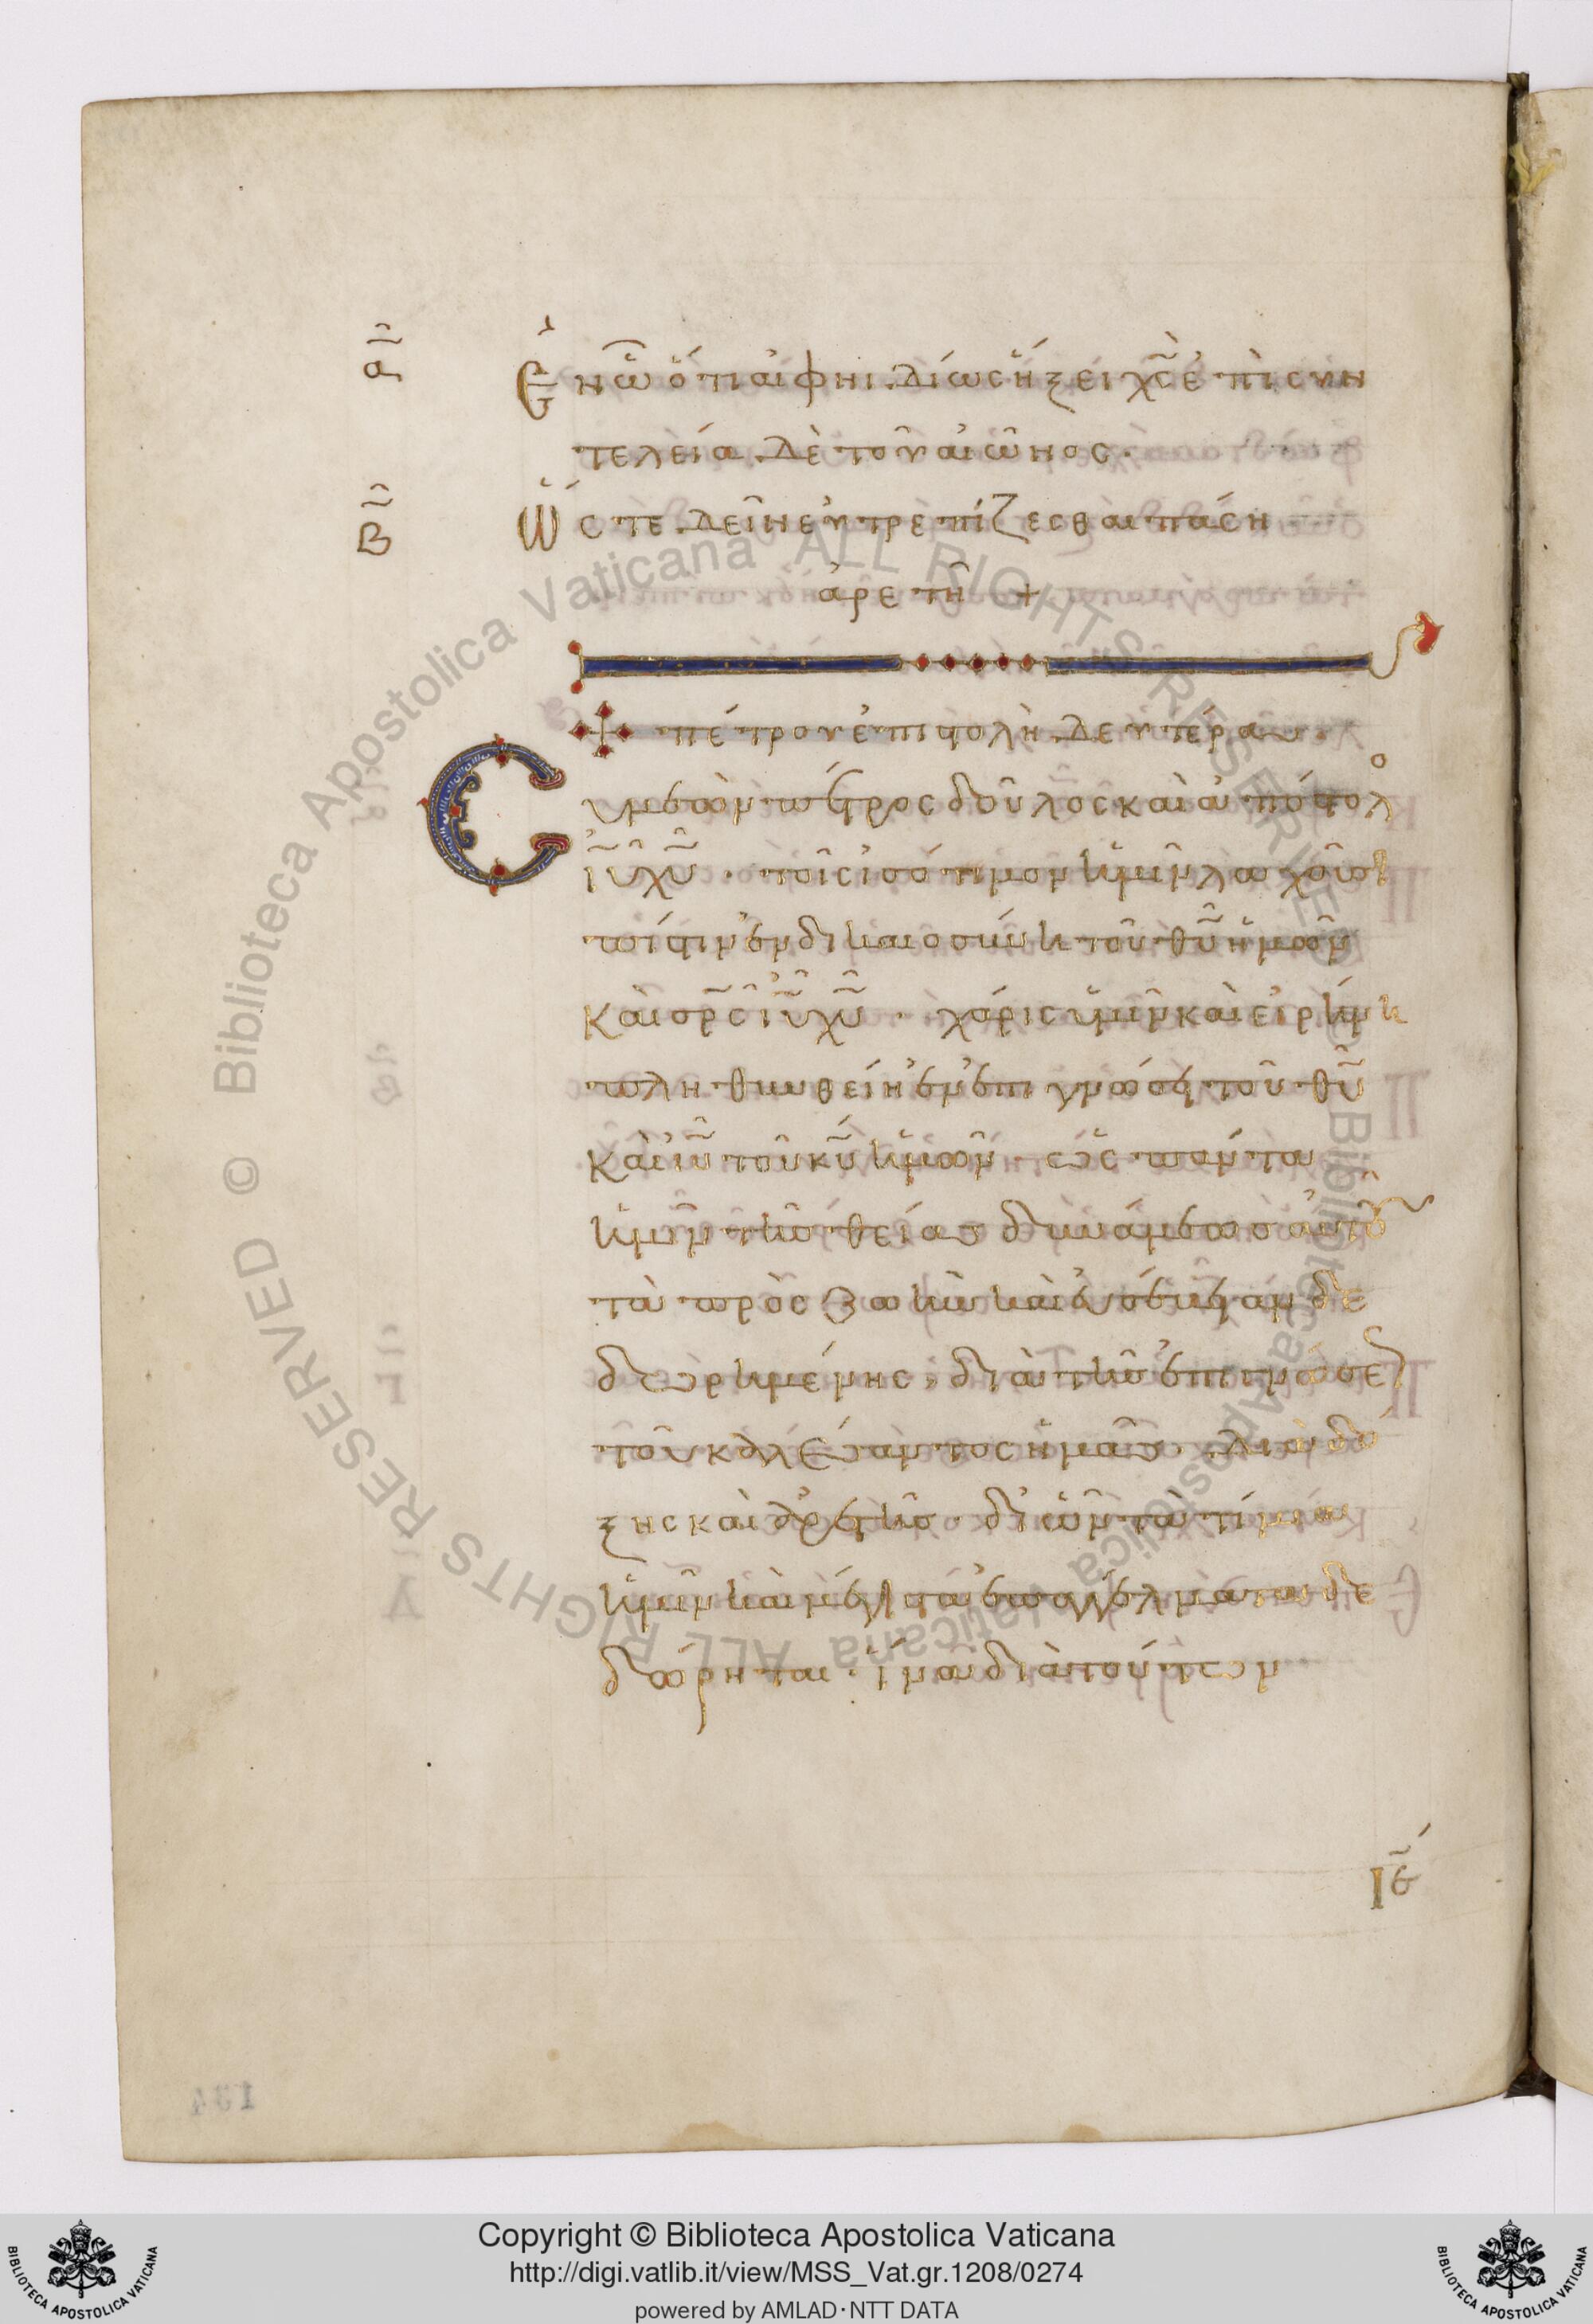 Α
Ἐν ᾧ ὅτι αἰφνιδίως ἥξει χς ἐπὶ συν
τελεία δὲ τοῦ αἰῶνος.
Β
Ὥστε δεῖν εὐτρεπίζεσθαι πάση
ἀρετῆ +
πέτρου ἐπιστολὴ δευτέρα.
Cυμεὼν πέτρος δοῦλος καὶ ἀπόστολο
ἰυ χυ. τοῖς ἰσότιμον ἡμῖν λαχοῦσι
πίστιν ἐν δικαιοσύνη τοῦ θυ ἡμῶν
καὶ σρς ιυ χυ. χάρις ὑμῖν καὶ εἰρήνη
πληθυνθείη ἐν ἐπιγνώσει τοῦ θυ
καὶ ιυ τοῦ κυ ἡμῶν. ὡς πάντα
ἡμῖν τῆς θείας δυνάμεως αὐτοῦ
τὰ πρὸς ζωὴν καὶ εὐσέβειαν δε
δωρημένης, διὰ τῆς ἐπιγνώσεως
τοῦ καλέσαντος ἡμᾶς. διὰ δό
ξης καὶ ἀρετῆς. δι ὧν τὰ τίμια
ἡμῖν καὶ μέγιστα ἐπαγγέλματα δε
δώρηται. ἵνα διὰ τούτων
ΙϚ
Copyright © Biblioteca Apostolica Vaticana
http://digi.vatlib.it/view/MSS_Vat.gr.1208/0274
powered by AMLAD·NTT DATA
BIBLIOTECA APOSTOLICA VATICANA
BIBLIOTECA APOSTOLICA VATICANA